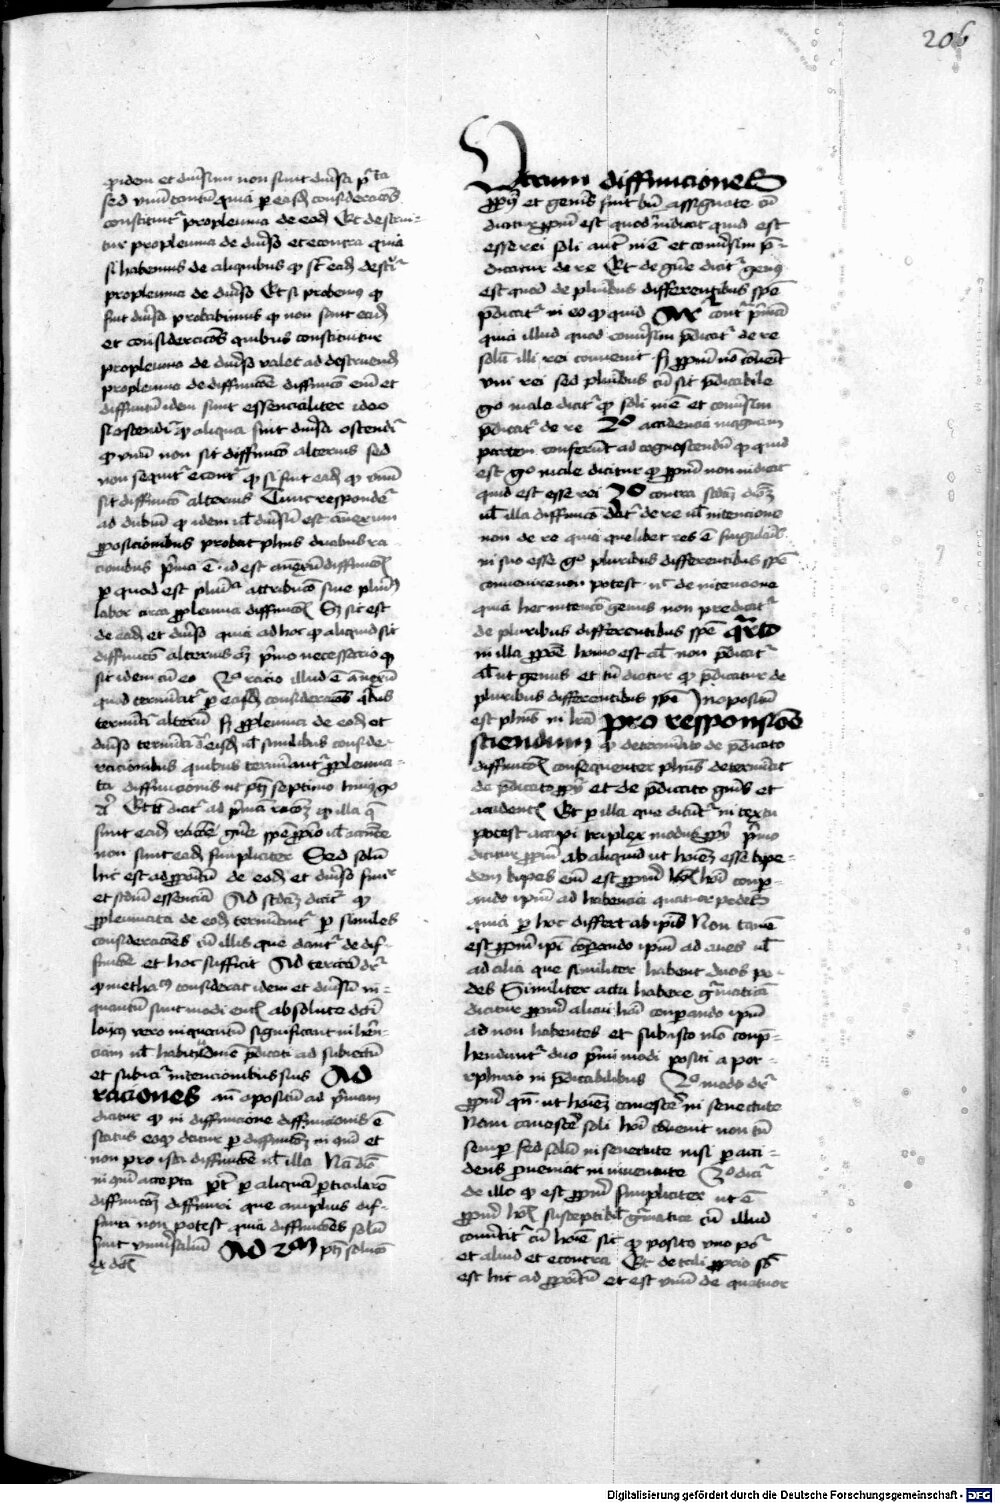 206
idem et diuersum non sunt diuersa
sed unum tantum quia per easdem consideraciones
constituitur propleuma de eodem Et destrui
tur propleuma de diuerso et econtra quia
si habemus de aliquibus quod sunt eadem
propleuma de diuerso Et si probemus quod
sint diuersa probabimus quod non sunt eadem
et consideraciones quibus constituitur
propleuma de diuerso valet ad destruendum
propleuma de diffinicione diffinicio enim et
diffinitum idem sunt essencialiter ideo
si ostenditur quod aliqua sunt diuersa ostenditur
quod unum non sit diffinicio alterius sed
non sequitur econtra quod si sint eadem quod unum
sit diffinicio alterius Tunc respondetur
ad dubium quod idem vel diuersum est annexum
proposicionibus probat philosophus duabus ra
cionibus prima est id est annexum diffinicioni
per quod est
labor circa propleuma diffinicionis Sed sic est
de eodem et diuerso quia ad hoc quod aliquid sit
diffinicio alterius oportet primo necessario quod
sit idem cum eo 2o racio illud est annexum
quod terminatur per easdem consideraciones quibus
terminatur alterum Sed propleuma de eodem et
diuerso terminatur eisdem vel similibus conside
racionibus quibus terminantur propleuma
ta diffinicionis ut patet septimo huius
sunt eadem racione generis speciei proprio vel accidente
non sunt eadem simpliciter Sed solum
et secundum essenciam Ad secundam dicitur quod
propleumata de eodem terminantur per similes
consideraciones cum illis que dantur de dif
finicione et hoc sufficit Ad terciam dicitur
quod metaphysicus considerat idem et diuersum in
quantum sunt modi entis absolute
loycus vero inquantum significant
ciam vel habitudinem predicati ad subiectum
et subiciuntur intencionibus suis Ad
raciones ante oppositum ad primam
dicitur quod in diffinicione diffinicionis est
status eo quod dicitur per diffinicionem in quid et
non pro ista diffinicione vel illa
diffinicionem diffiniri que amplius dif
finiri non potest quia diffiniciones solum
sunt universalium Ad 2m patet solucio
ex dictis
Utrum diffinicionem
proprii et generis sint bene assignate cum
dicitur proprium est quod non indicat quid est
esse rei soli autem inest et conuersim pre
dicatur de re Et de genere dicitur genus
est quod de pluribus differentibus specie
predicatur in eo quod quid Arguitur contra primam
quia illud quod conuersim predicatur de re
soli illi rei conuenit Sed proprium non conuenit
uni rei sed pluribus cum sit predicabile
igitur male dicitur quod soli inest et conuersim
predicatur de re 2o accidencia magnam
partem conferunt ad cognoscendum quod quid
est igitur male dicitur quod proprium non indicat
quid est esse rei 3o contra secundam
vel illa diffinicio datur de re vel intencione
non de re quia quelibet res est singularis
in suo esse igitur pluribus differentibus specie
conuenire non potest nec de intencione
quia hec intencio genus non predicatur
de pluribus differentibus specie quarto
in illa proposicione homo est animal non predicatur
animal ut genus et tamen dicitur quod predicatur de
pluribus differentibus specie In oppositum
est philosophus in littera pro responsione
sciendum quod determinato de predicato
diffinicionis consequenter philosophus determinat
de predicato proprii et de predicato generis et
accidentis Et per illa que dicuntur in textu
potest accipi triplex modus proprii primo
dicitur proprium ab aliquid ut hominem esse bipe
dem bipes enim est proprium homini conp
ando ipsum ad habencia quatuor pedes
quia per hoc differt ab ipsis Non tamen
est proprium ipsi comparando ipsum ad aues vel
ad alia que similiter habent duos pe
des Similiter actu habere gramaticam
dicitur proprium alicui homini conparando ipsum
ad non habentes et sub isto modo conp
henduntur duo primi modi positi a por
phirio in predicabilibus 2o modo dicitur
proprium ut hominem canescere in senectute
Nam canescere soli homini conuenit non tamen
semper sed solum in senectute nisi per acci
dens proueniat in iuuentute 3o dicitur
de illo quod est proprium simpliciter ut est
proprium hominis susceptibile gramatice cum illud
conuertitur cum homine sic quod posito uno ponitur
et aliud et econtra Et de tali proprio
est hic ad propositum et est unum de quatuor
Digitalisierung gefördert durch die Deutsche Forschungsgemeinschaft - DFG